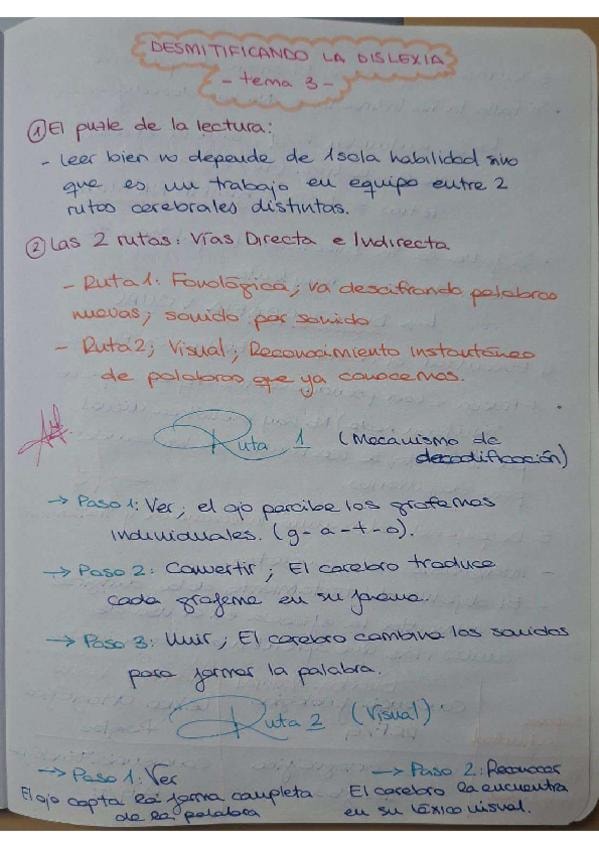 DESMITIFICANDO LA DISLEXIA
- tema 3 -
① El puzle de la lectura:
- Leer bien no depende de 1 sola habilidad sino
que es un trabajo en equipo entre 2
rutas cerebrales distintas.
② Las 2 rutas: Vías Directa e Indirecta
- Ruta 1: Fonológica; va descifrando palabras
nuevas; sonido por sonido
- Ruta 2; Visual; Reconocimiento instantáneo
de palabras que ya conocemos.
Ruta 1 (Mecanismo de
decodificación)
→ Paso 1: Ver; el ojo percibe los grafemas
individuales. (g-a-t-o).
→ Paso 2: Convertir; El cerebro traduce
cada grafema en su fonema.
→ Paso 3: Unir; El cerebro combina los sonidos
para formar la palabra.
Ruta 2 (Visual)
→ Paso 1: Ver
El ojo capta la forma completa
de la palabra
→ Paso 2: Reconocer
El cerebro la encuentra
en su léxico visual.